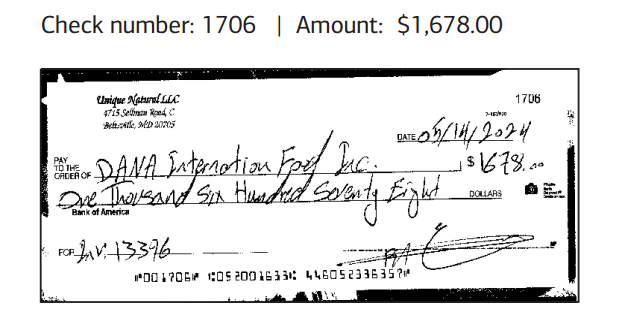 Check number: 1706 | Amount: $1,678.00
Unique Natural LLC
4715 Sellman Road, C
Beltsville, MD 20705
1706
DATE 05/14/2024
PAY TO THE ORDER OF DANA Internation Food Inc. $1678.00
One Thousand Six Hundred Seventy Eight DOLLARS
Bank of America
FOR Inv. 13396
⑈001706⑈ ⑆052001633⑆ 446052336357⑈